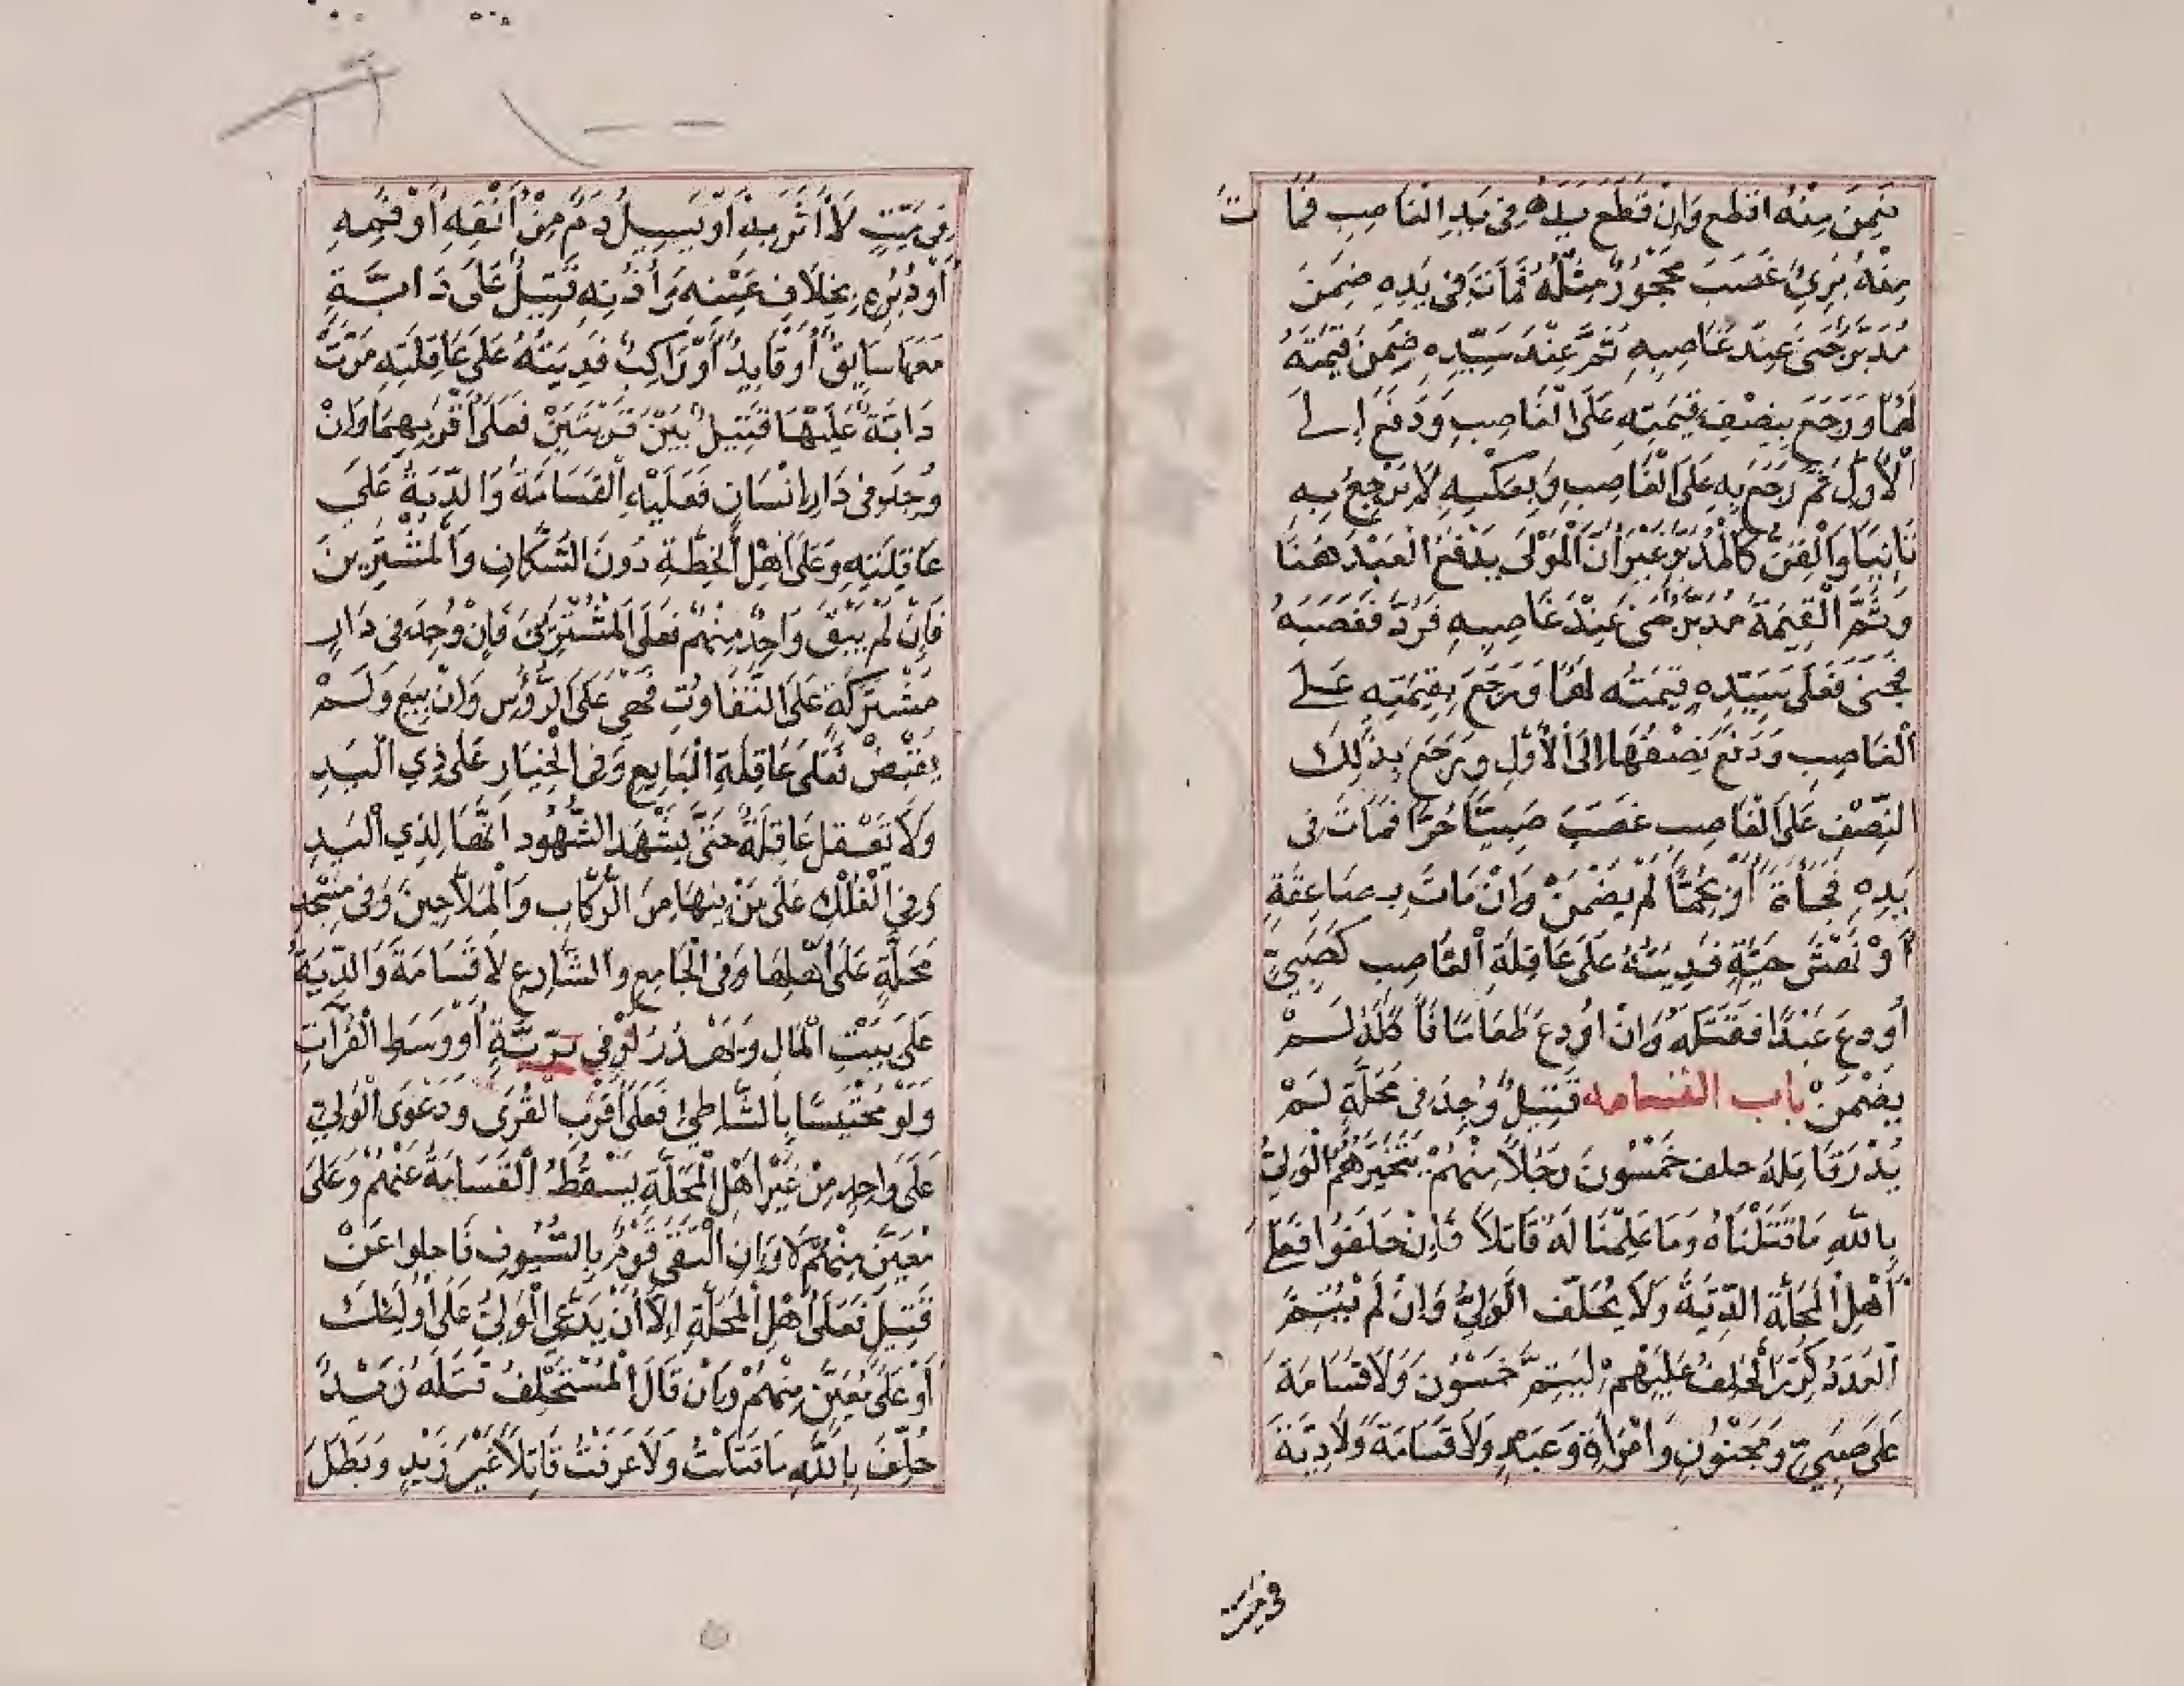 ضمن قيمته اقطع وَإنْ قَطَعَ يَدَهُ فِى يَدِ الْغَاصِبِ فَمَاتَ
مِنْهُ بَرِئَ غَصَبَ مَحْجُورٌ مِثْلَهُ فَمَاتَ فِى يَدِهِ ضَمِنَ
مُدَبَّرٌ جَنَى عِنْدَ غَاصِبِهِ ثُمَّ عِنْدَ سَيِّدِهِ ضَمِنَ قِيمَتَهُ
لَهُمَا وَرَجَعَ بِنِصْفِ قِيمَتِهِ عَلَى الْغَاصِبِ وَدَفَعَ إلى
الْأَوَّلِ ثُمَّ رَجَعَ بِهِ عَلَى الْغَاصِبِ وَبِعَكْسِهِ لَا يَرْجِعُ بِهِ
ثَانِيًا وَالْقِنُّ كَالْمُدَبَّرِ غَيْرَ أَنَّ الْمَوْلَى يَدْفَعُ الْعَبْدَ هُنَا
وَثَمَّ الْقِيمَةَ مُدَبَّرٌ جَنَى عِنْدَ غَاصِبِهِ فَرَدَّ فَغَصَبَهُ
فَجَنَى فَعَلَى سَيِّدِهِ قِيمَتُهُ لَهُمَا وَرَجَعَ بِقِيمَتِهِ عَلى
الْغَاصِبِ وَدَفَعَ نِصْفَهَا إلَى الْأَوَّلِ وَرَجَعَ بِذَلِكَ
النِّصْفِ عَلَى الْغَاصِبِ غَصَبَ صَبِيًّا حُرًّا فَمَاتَ فى
يَدِهِ فَجْأَةً أَوْ بِحُمَّا لَمْ يَضْمَنْ وَانْ مَاتَ بِصَاعِقَةٍ
أَوْ نَهْشِ حَيَّةٍ فَدِيَتُهُ عَلَى عَاقِلَةِ الْغَاصِبِ كَصَبِيٍّ
أُودِعَ عَبْدًا فَقَتَلَهُ وَانْ أُودِعَ طَعَامًا فَأَكَلَهُ لَمْ
يَضْمَنْ باب القسامه قَتِيلٌ وُجِدَ فى مَحَلَّةٍ لَمْ
يُدْرَ قَاتِلُهُ حلف خَمْسُونَ رَجُلًا مِنْهُمْ يَتَخَيَّرُهُمُ الْوَلِيُّ
بِاللَّهِ مَا قَتَلْنَاهُ وَمَا عَلِمْنَا لَهُ قَاتِلًا فَإِنْ حَلَفُوا فَعَلَى
أَهْلِ الْمَحَلَّةِ الدِّيَةُ وَلَا يُحَلَّفُ الْوَلِيُّ وَإنْ لَمْ يَتِمَّ
الْعَدَدُ كُرِّرَ الْحَلِفُ عَلَيْهِمْ لِيَتِمَّ خَمْسُونَ وَلَا قَسَامَةَ
عَلَى صَبِيٍّ وَمَجْنُونٍ وَامْرَأَةٍ وَعَبْدٍ وَلَا قَسَامَةَ وَلَا دِيَةَ
فى ميت
فِى مَيِّتٍ لَا أَثَرَ بِهِ أَوْ يَسِيلُ دَمٌ مِنْ أَنْفِهِ أَوْ فَمِهِ
أَوْ دُبُرِهِ بِخِلَافِ عَيْنِهِ وَأُذُنِهِ قَتِيلٌ عَلَى دَابَّةٍ
مَعَهَا سَايِقٌ أَوْ قَايِدٌ أَوْ رَاكِبٌ فَدِيَتُهُ عَلَى عَاقِلَتِهِ مَرَّتْ
دَابَّةٌ عَلَيْهَا قَتِيلٌ بَيْنَ قَرْيَتَيْنِ فَعَلَى أَقْرَبِهِمَا وَانْ
وُجِدَ فى دَارِ إنْسَانٍ فَعَلَيْهِ الْقَسَامَةُ وَالدِّيَةُ عَلَى
عَاقِلَتِهِ وَعَلَى أَهْلِ الْخِطَّةِ دُونَ السُّكَّانِ وَالْمُشْتَرِينَ
فَإِنْ لَمْ يَبْقَ وَاحِدٌ مِنْهُمْ فَعَلَى الْمُشْتَرِينَ فَإِنْ وُجِدَ فى دَارٍ
مُشْتَرَكَةٍ عَلَى التَّفَاوُتِ فَهِيَ عَلَى الرُّؤُسِ وَانْ بِيعَ وَلَمْ
يُقْبَضْ فَعَلَى عَاقِلَةِ الْبَايِعِ وَفى الْخِيَارِ عَلَى ذِي الْيَدِ
وَلَا تَعْقِلُ عَاقِلَةٌ حَتَّى يَشْهَدَ الشُّهُودُ انَّهَا لِذِي الْيَدِ
وَفِى الْفُلْكِ عَلَى مَنْ فِيهَا مِنَ الرُّكَّابِ وَالْمَلَّاحِينَ وَفى مَسْجِدِ
مَحَلَّةٍ عَلَى أَهْلِهَا وَفى الْجَامِعِ وَالشَّارِعِ لَا قَسَامَةَ وَالدِّيَةُ
عَلَى بَيْتِ الْمَالِ وَيُهْدَرُ لَوْ فِى بَرِّيَّةٍ أَوْ وَسَطِ الْفُرَاتِ
وَلَوْ مُحْتَبِسًا بِالشَّاطِئِ فَعَلَى أَقْرَبِ الْقُرَى وَدَعْوَى الْوَلِيِّ
عَلَى وَاحِدٍ مِنْ غَيْرِ أَهْلِ الْمَحَلَّةِ يَسْقُطُ الْقَسَامَةُ عَنْهُمْ وَعَلَى
مُعَيَّنٍ مِنْهُمْ لَا وَإنِ الْتَقَى قَوْمٌ بِالسُّيُوفِ فَاجلوا عَنْ
قَتِيلٍ فَعَلَى أَهْلِ الْمَحَلَّةِ الَّا أَنْ يَدَّعِيَ الْوَلِيُّ عَلَى أُولَئِكَ
أَوْ عَلَى مُعَيَّنٍ مِنْهُمْ وَإنْ قَالَ الْمُسْتَحْلَفُ قَتَلَهُ زَيْدٌ
حُلِّفَ بِاللَّهِ مَا قَتَلْتُ وَلَا عَرَفْتُ قَاتِلًا غَيْرَ زَيْدٍ وَبَطَلَ